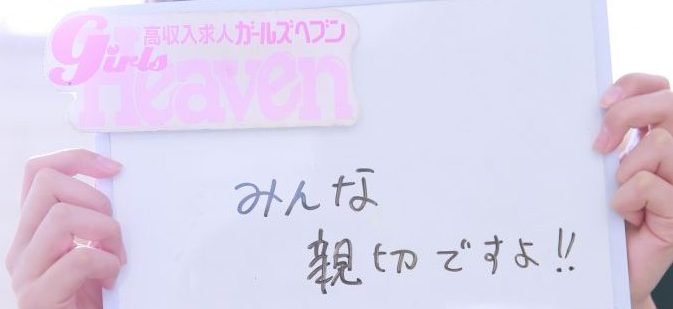 高収入求人ガールズヘブン
Girls
Heaven
みんな
親切ですよ!!